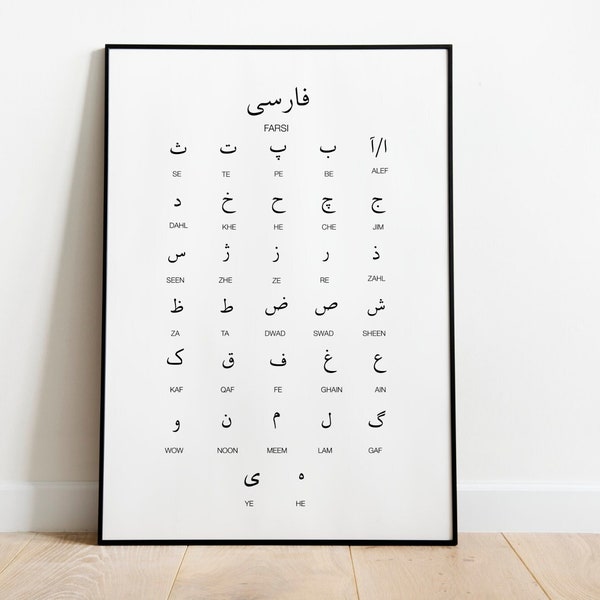 فارسی
FARSI
آ/ا ب پ ت ث
SE TE PE BE ALEF
ج چ ح خ د
DAHL KHE HE CHE JIM
ذ ر ز ژ س
SEEN ZHE ZE RE ZAHL
ش ص ض ط ظ
ZA TA DWAD SWAD SHEEN
ع غ ف ق ک
KAF QAF FE GHAIN AIN
گ ل م ن و
WOW NOON MEEM LAM GAF
ه ی
YE HE